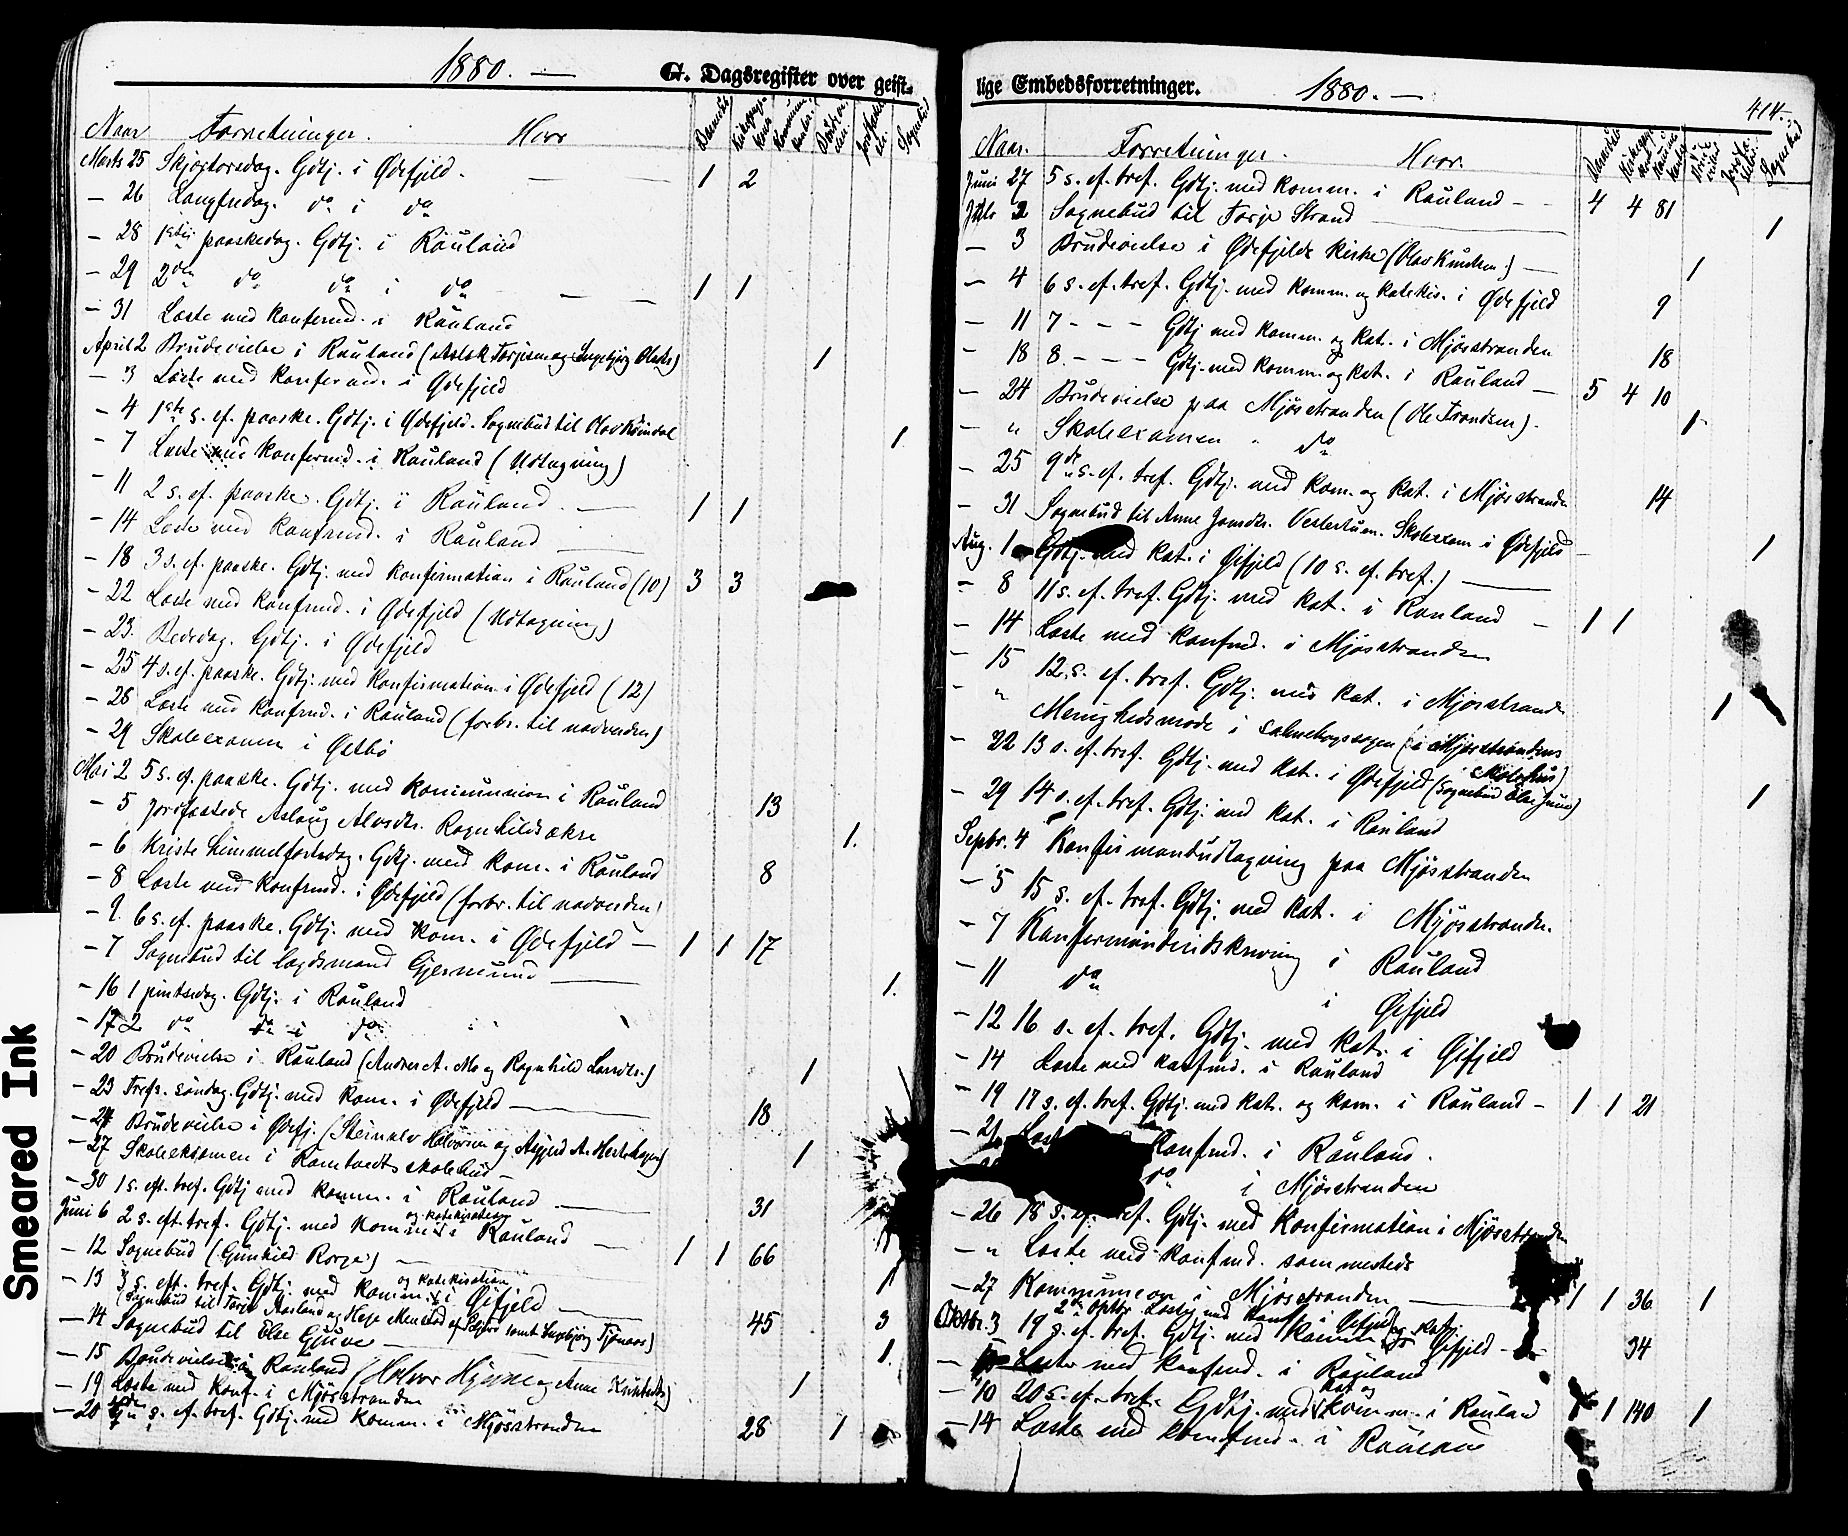 1880. —
G. Dagsregister over geist-
Naar Forretninger. Hvor
Marts 25 Skjærtorsdag. Gdtj. i Ødefjeld. — 1 2
- 26 Langfredag. do i do
- 28 1ste paaskedag. Gdtj. i Rauland
- 29 2den do do i do — 1 1
- 31 Læste med konfirmd. i Rauland
April 2 Brudevielse i Rauland (Aslak Torjesen og Ingebjørg Olsdtr) 1
- 3 Læste med konfirmd. i Ødefjeld
- 4 1ste s. ef. paaske. Gdtj. i Ødefjeld. Sognebud til Olav 1
- 7 Læste med konfirmd. i Rauland (Udtagning)
- 11 2 s. ef. paaske. Gdtj. i Rauland. — 1 1
- 14 Læste med konfirmd. i Rauland
- 18 3 s. ef. paaske. Gdtj. med konfirmation i Rauland (10) 3 3
- 22 Læste med konfrmd. i Ødefjeld (Udtagning)
- 23. Bededag. Gdtj. i Ødefjeld
- 25 4 s. ef. paaske. Gdtj. med konfirmation i Ødefjeld (12)
- 28 Læste med konfrmd. i Rauland (forbr. til nadverden)
- 29 Skoleexamen i Østbø
Mai 2 5 s. ef. paaske. Gdtj. med kommunion i Rauland 13
- 5 Jordfæstede Aslaug Alvsdtr. Ragnhildsakre 1.
- 6 Kristi Himmelfartsdag. Gdtj. med kom. i Rauland 8
- 8 Læste med konfrmd. i Ødefjeld (forbr. til nadverden)
- 9. 6 s. ef. paaske. Gdtj. med kom. i Ødefjeld — 1 1 17
- 7 Sognebud til lagdsmand Gjermund 1.
- 16 1 pintsedag. Gdtj. i Rauland
- 17 2 do do i do
- 20 Brudevielse i Rauland (Andres A. Mo og Ragnhild Larsdtr.) 1
- 23 Trefs. søndag. Gdtj. med kom. i Ødefjeld — 18
- 24 Brudevielse i Ødefj. (Steinulv Halvorsen og A.) 1
- 27 Skoleeksamen i Romtveits skolehus
- 30 1 s. eft. tref. Gdtj med komm. i Rauland — 31
Juni 6 2 s. eft. tref. Gdtj. med komm. og katekisation i Rauland — 1 1 66
- 12 Sognebud (Gunhild Rorge) — 1
- 13 3 s. eft. tref. Gdtj. med komm. og katekisation i Øifjeld — 45 3
(Sognebud til Torje Aasland og Hege samt Ingebjørg Tjønaas)
- 14 Sognebud til Else Gjuve — 1.
- 15 Brudevielse i Rauland (Halvor og Anne Knutsdtr) 1
- 19 Læste med konf. i Mjøsstranden
- 20 s. ef. tref. Gdtj. med komm. i Mjøsstranden 28 1
lige Embedsforretninger.
1880. —
414.
Naar. Forretninger. Hvor.
Juni 27 5 s. ef. tref. Gdtj. med komm. i Rauland — 4 4 81
Juli 2 Sognebud til Torje Strand 1
- 3 Brudevielse i Ødefjelds kirke (Olav Knudsen) — 1
- 4 6 s. ef. tref. Gdtj. med komm. og katekis. i Ødefjeld 9
- 11 7 - - - Gdtj med komm. og kat. i Mjøsstranden 18
- 18 8. - - - Gdtj. med komm. og kat. i Rauland — 5 4 10
- 24 Brudevielse paa Mjøsstranden (Ole Trondsen). 1
- " Skoleexamen " do
- 25 9de s. ef. tref. Gdtj. med kom. og kat. i Mjøsstranden 14
- 31 Sognebud til Anne Jonsdtr. Vestertun. Skoleexam i Ødefjeld 1
Aug. 1 Gdtj. med kat. i Øifjeld (10 s. ef. tref.) —
- 8 11 s. ef. tref. Gdtj. med kat. i Rauland — 1 1
- 14 Læste med konfmd. i Mjøsstranden
- 15 12. s. ef. tref. Gdtj. med kat. i Mjøsstranden
- " Menighedsmøde i salmebogssagen (i Mjøsstrandens Skolehus) 1
- 22 13 s. ef. tref. Gdtj. med kat. i Ødefjeld (Sognebud Else Juve) 1
- 29 14 s. ef. tref. Gdtj. med kat. i Rauland
Septbr. 4 Konfirmantudtagning paa Mjøsstranden
- 5 15 s. ef. tref. Gdtj. med kat. i Mjøsstranden.
- 7 Konfirmandindskrivning i Rauland
- 11 do i Øifjeld
- 12 16 s. ef. tref. Gdtj. med kat. i Øifjeld
- 14 Læste med konfmd. i Rauland
- 19 17 s. ef. tref. Gdtj. med kat. og kom. i Rauland — 1 1 21
- 21 Læst konfmd. i Rauland.
do i Mjøsstranden
- 26 18 s. ef. tref. Gdtj. med konfirmation i Mjøsstranden
- " Læste med konfmd. sammesteds
- 27 Kommunion i Mjøsstranden — 1 1 36 1
2den Optbr Læste med Konf i Øifjeld
Oktbr. 3 19 s. ef. tref. Gdtj. med komm. og kat. i Øifjeld — 34
- Læste med konfmd. i Rauland
- 10 20 s. ef. tref. Gdtj. med kat og komm. i Rauland 1 140 1
- 14 Læste med konfmd. i Rauland
Smeared Ink